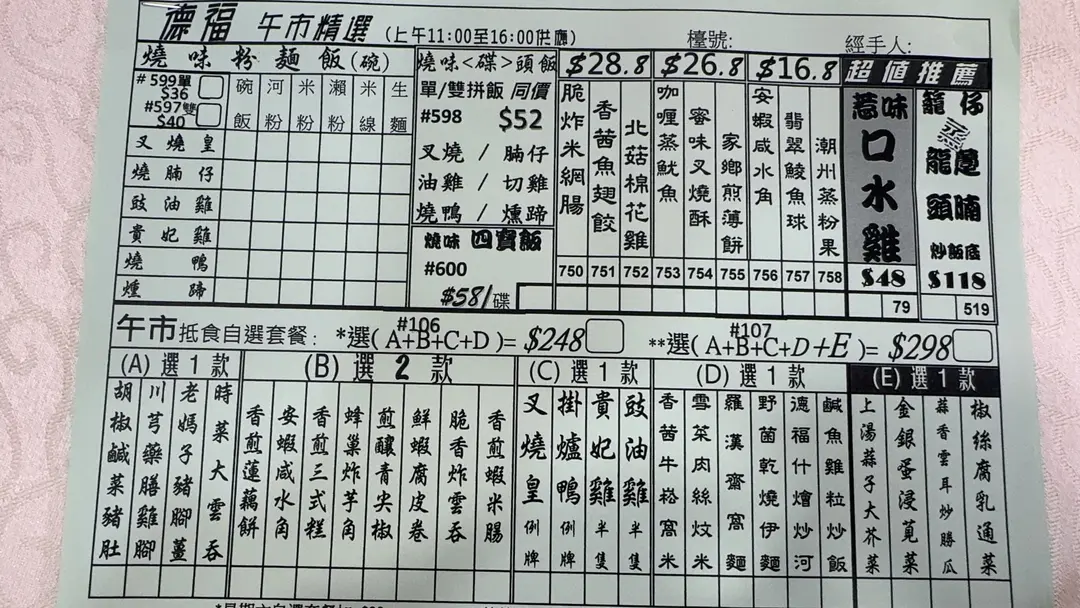 德福 午市精選 (上午11:00至16:00供應) 檯號: 經手人:
燒味粉麵飯(碗)
#599單 $36
#597雙 $40
碗飯
河粉
米粉
瀨粉
米線
生麵
叉燒皇
燒腩仔
豉油雞
貴妃雞
燒鴨
燻蹄
燒味<碟>頭飯
單/雙拼飯 同價
#598 $52
叉燒 / 腩仔
油雞 / 切雞
燒鴨 / 燻蹄
燒味 四寶飯
#600
$58/碟
$28.8
脆炸米網腸 750
香茜魚翅餃 751
北菇棉花雞 752
$26.8
咖喱蒸魷魚 753
蜜味叉燒酥 754
家鄉煎薄餅 755
$16.8
安蝦咸水角 756
翡翠鯪魚球 757
潮州蒸粉果 758
超值推薦
惹味口水雞
$48
79
籠仔蒸龍躉頭腩
炒飯底
$118
519
午市抵食自選套餐: *選(A+B+C+D)= $248
#106
**選(A+B+C+D+E)= $298
#107
(A) 選1款
胡椒鹹菜豬肚
川芎藥膳雞腳
老媽子豬腳薑
時菜大雲吞
(B) 選2款
香煎蓮藕餅
安蝦咸水角
香煎三式糕
蜂巢炸芋角
煎釀青尖椒
鮮蝦腐皮卷
脆香炸雲吞
香煎蝦米腸
(C) 選1款
叉燒皇例牌
掛爐鴨例牌
貴妃雞半隻
豉油雞半隻
(D) 選1款
香茜牛崧窩米
雪菜肉絲炆米
羅漢齋窩麵
野菌乾燒伊麵
德福什燴炒河
鹹魚雞粒炒飯
(E) 選1款
上湯蒜子大芥菜
金銀蛋浸莧菜
蒜香雲耳炒勝瓜
椒絲腐乳通菜